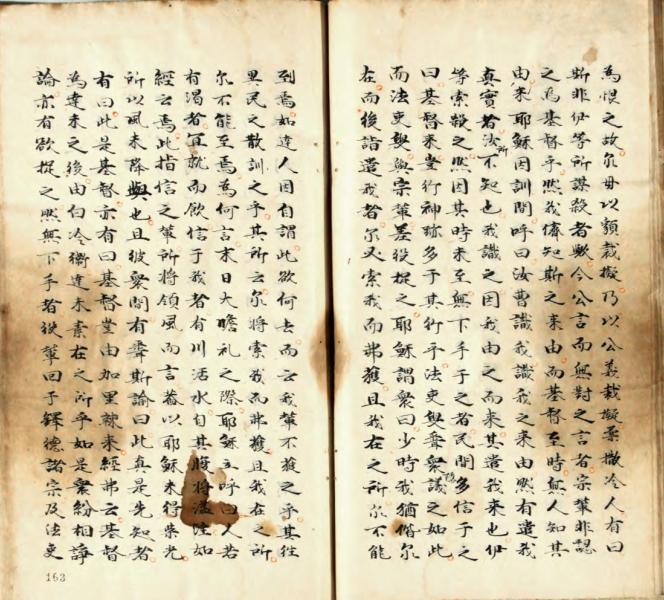 為恨之故尔毋以額裁擬乃以公義裁擬柔撒冷人有曰
斯非伊等所謀殺者歟今公言而無對之言者宗輩非認
之為基督乎然我儕知斯之来由而基督至時無人知其
由来耶穌因訓間呼曰汝曹識我識我之来由然有遣我
真實者汝所不知也我識之因我由之而来其遣我来也伊
等索殺之然因其時未至無下手于之者民間多信于之
曰基督来豈行神跡多于其行乎法吏聞衆議之如此
而法吏與宗輩差役捉之耶穌謂衆曰少時我猶偕尔
在而後詣遣我者尔又索我而弗獲且我在之所尔不能
到焉如達人因自謂此欲何去而云我輩不獲之乎其往
異民之散訓之乎其所云尔将索我而弗獲且我在之所
尔不能至焉為何言末日大瞻礼之際耶穌立呼曰人若
有渴者宜就而飲信于我者有川活水自其腹将流如
經云焉此指信之輩所将領風而言蓋以耶穌未得榮光
所以風未降與也且彼衆間有聞斯論曰此真是先知者
有曰此是基督亦有曰基督豈由加里辣来經弗云基督
為達未之後由白冷衛達未素在之所乎如是衆紛相諍
論亦有欲捉之然無下手者役輩回于鐸德諸宗及法吏
163